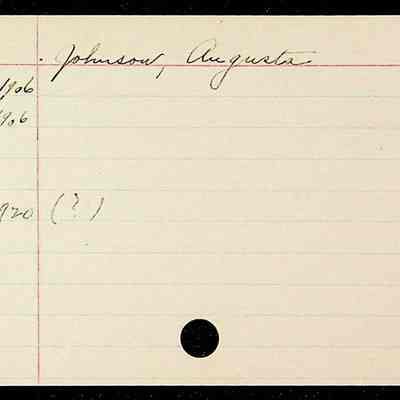 Johnson, Augusta
1906
1906
1920 (?)